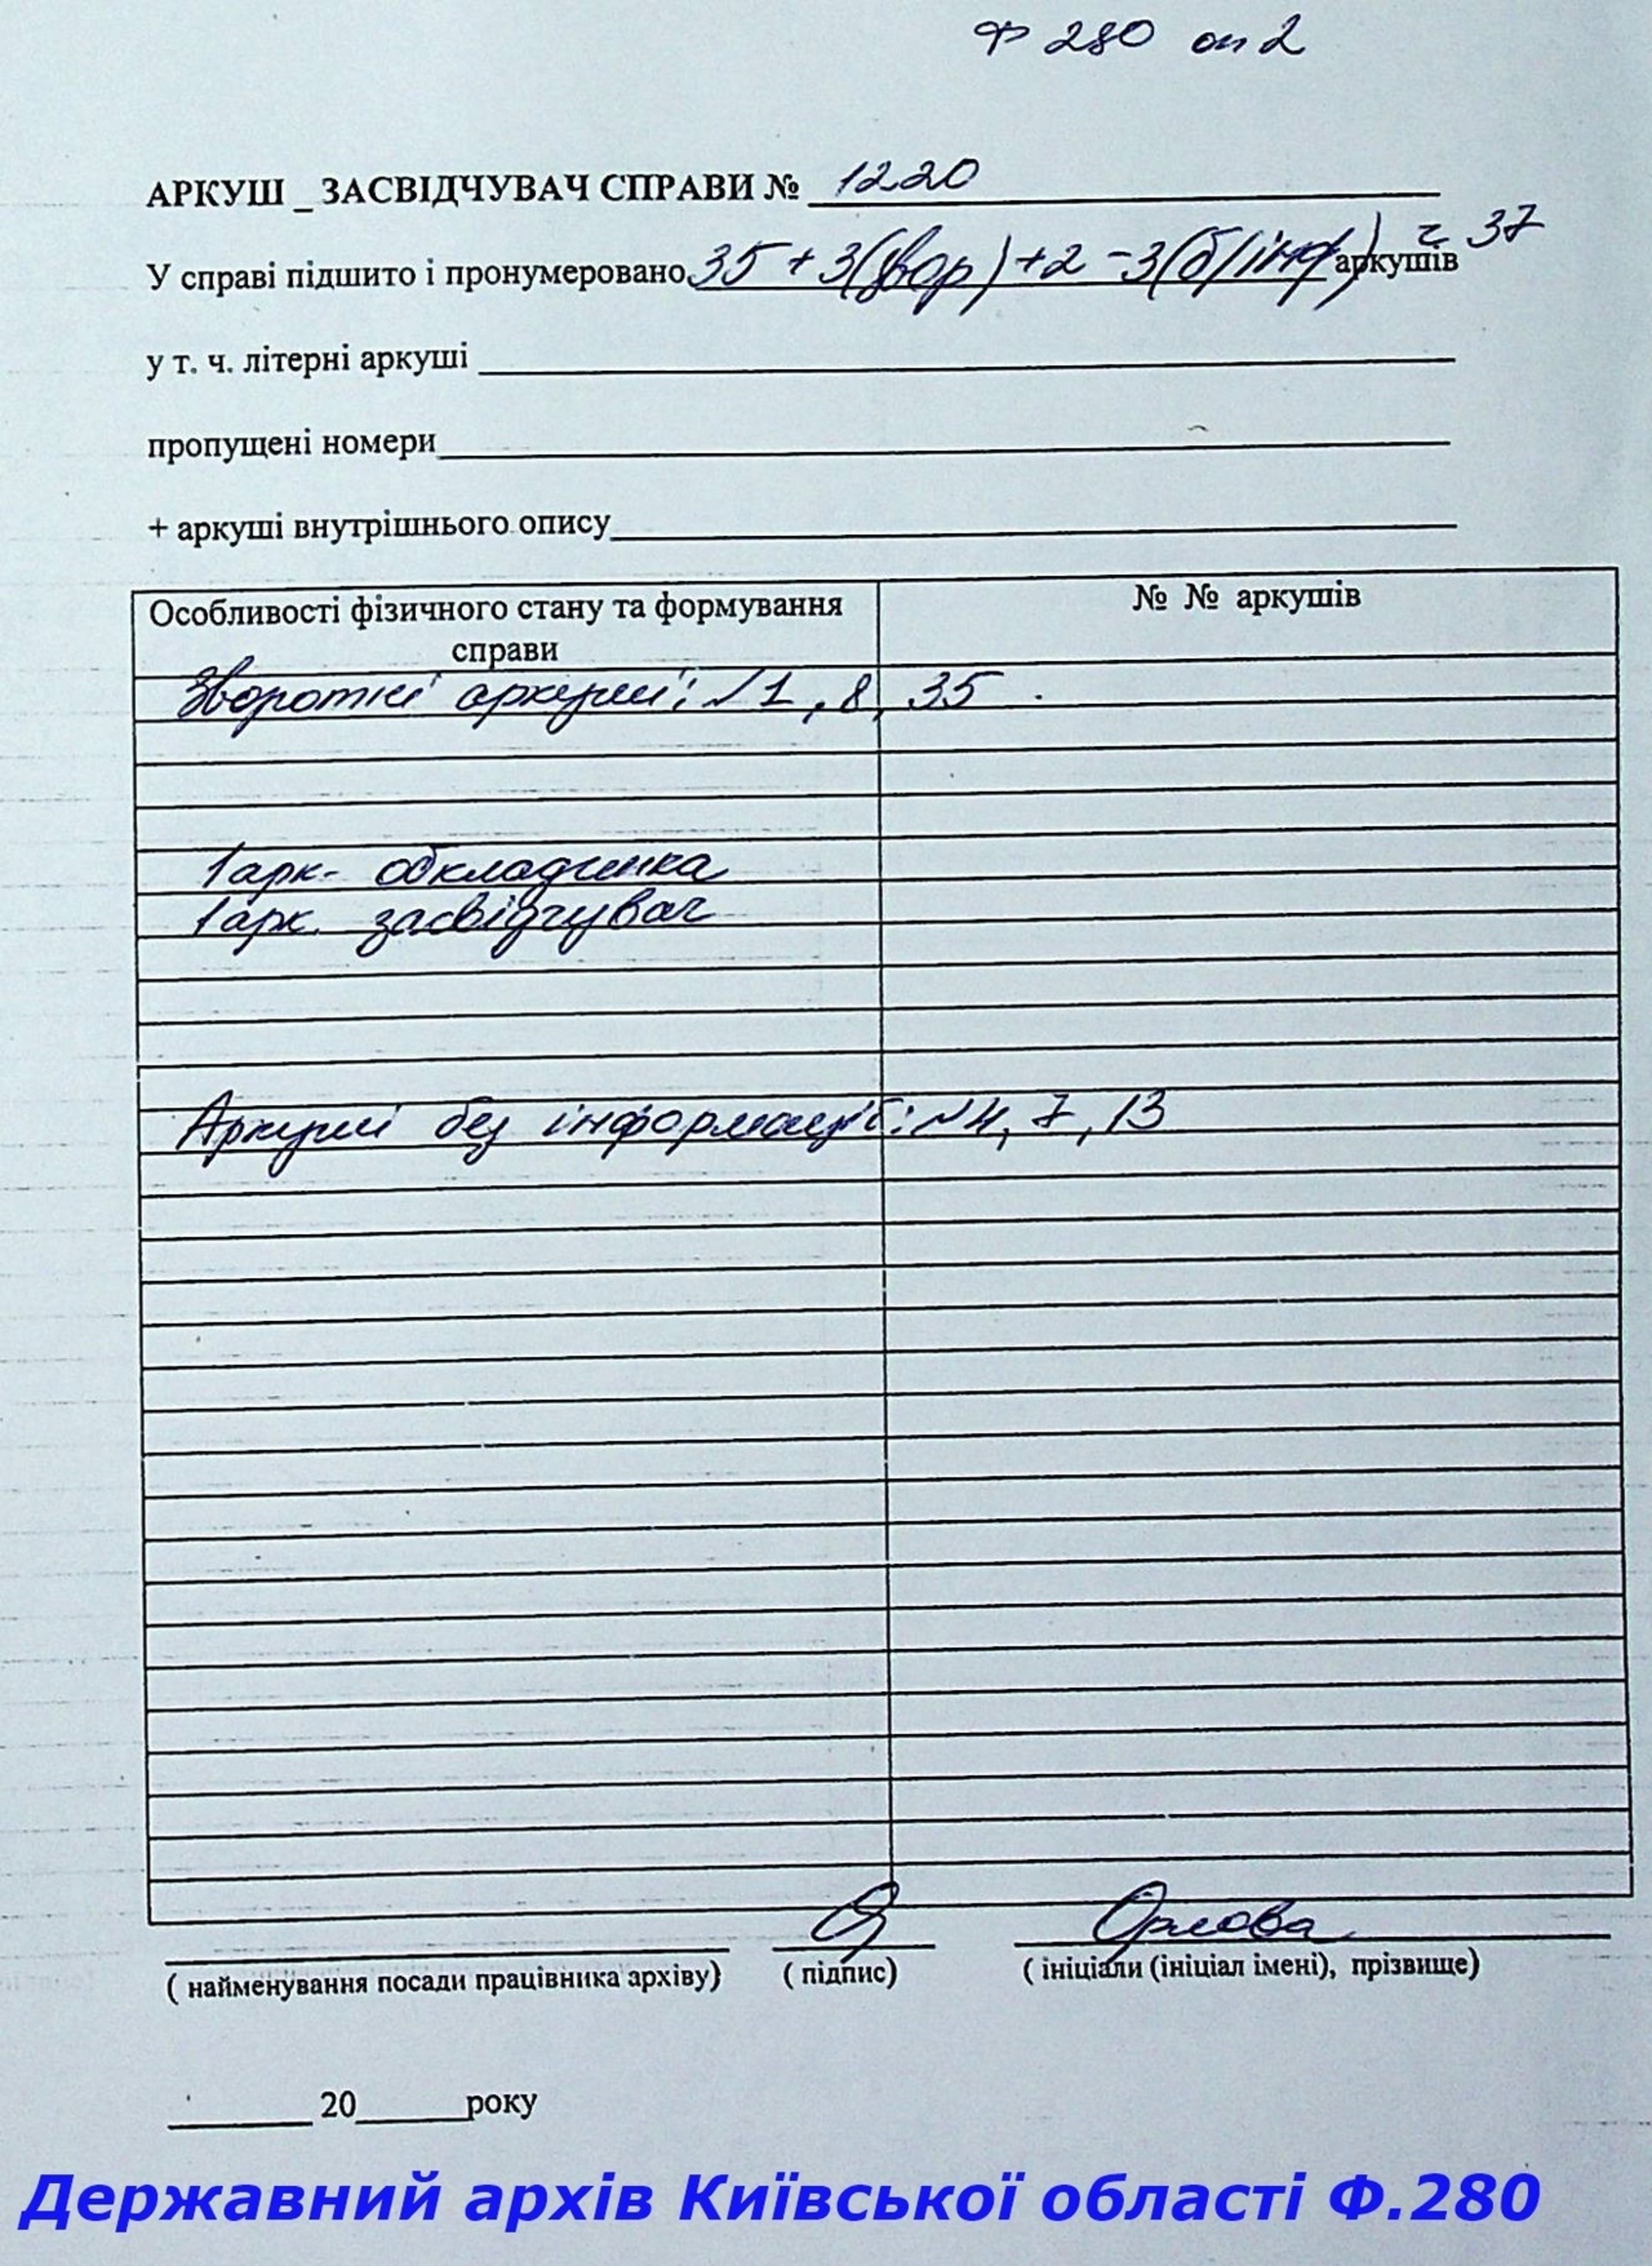 Ф 280 оп 2
АРКУШ _ ЗАСВІДЧУВАЧ СПРАВИ № 1220
У справі підшито і пронумеровано 35 + 3(звор) +2 -3(б/інф) аркушів = 37
у т. ч. літерні аркуші
пропущені номери
+ аркуші внутрішнього опису
Особливості фізичного стану та формування справи
№ № аркушів
Зворотні аркуші: N 1, 8, 35.
1 арк- обкладинка
1 арк. засвідчувач
Аркуші без інформації: N 4, 7, 13
Орлова
( найменування посади працівника архіву) ( підпис) ( ініціали (ініціал імені), прізвище)
20 року
Державний архів Київської області Ф.280